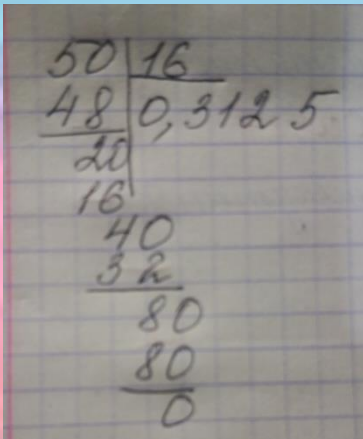 50 16
48 0,3125
20
16
40
32
80
80
0